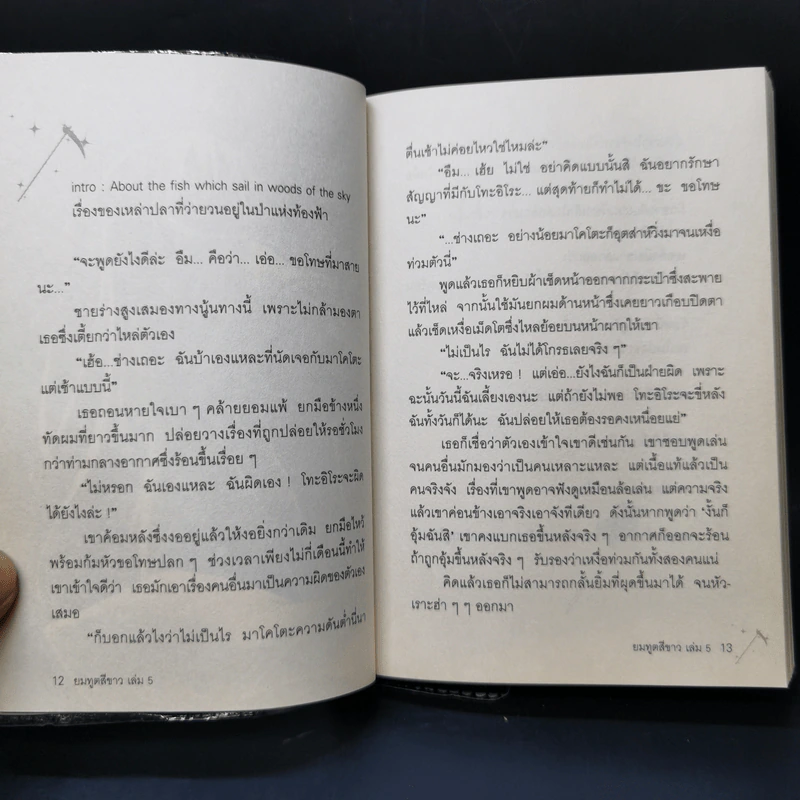 intro : About the fish which sail in woods of the sky
เรื่องของเหล่าปลาที่ว่ายวนอยู่ในป่าแห่งท้องฟ้า
“จะพูดยังไงดีล่ะ อืม... คือว่า... เอ่อ... ขอโทษที่มาสาย
นะ...”
ชายร่างสูงเสมองทางนู้นทางนี้ เพราะไม่กล้ามองตา
เธอซึ่งเตี้ยกว่าไหล่ตัวเอง
“เฮ้อ...ช่างเถอะ ฉันบ้าเองแหละที่นัดเจอกับมาโคโตะ
แต่เช้าแบบนี้”
เธอถอนหายใจเบา ๆ คล้ายยอมแพ้ ยกมือข้างหนึ่ง
ทัดผมที่ยาวขึ้นมาก ปล่อยวางเรื่องที่ถูกปล่อยให้รอชั่วโมง
กว่าท่ามกลางอากาศซึ่งร้อนขึ้นเรื่อย ๆ
“ไม่หรอก ฉันเองแหละ ฉันผิดเอง ! โทะอิโระจะผิด
ได้ยังไงล่ะ !”
เขาค้อมหลังซึ่งงออยู่แล้วให้งอยิ่งกว่าเดิม ยกมือไหว้
พร้อมก้มหัวขอโทษปลก ๆ ช่วงเวลาเพียงไม่กี่เดือนนี้ทำให้
เขาเข้าใจดีว่า เธอมักเอาเรื่องคนอื่นมาเป็นความผิดของตัวเอง
เสมอ
“ก็บอกแล้วไงว่าไม่เป็นไร มาโคโตะความดันต่ำนี่นา
12 ยมทูตสีขาว เล่ม 5
ตื่นเช้าไม่ค่อยไหวใช่ไหมล่ะ”
“อืม... เฮ้ย ไม่ใช่ อย่าคิดแบบนั้นสิ ฉันอยากรักษา
สัญญาที่มีกับโทะอิโระ... แต่สุดท้ายก็ทำไม่ได้... ขะ ขอโทษ
นะ”
“...ช่างเถอะ อย่างน้อยมาโคโตะก็อุตส่าห์วิ่งมาจนเหงื่อ
ท่วมตัวนี่”
พูดแล้วเธอก็หยิบผ้าเช็ดหน้าออกจากกระเป๋าซึ่งสะพาย
ไว้ที่ไหล่ จากนั้นใช้มันยกผมด้านหน้าซึ่งเคยยาวเกือบปิดตา
แล้วเช็ดเหงื่อเม็ดโตซึ่งไหลย้อยบนหน้าผากให้เขา
“ไม่เป็นไร ฉันไม่ได้โกรธเลยจริง ๆ”
“จะ...จริงเหรอ ! แต่เอ่อ...ยังไงฉันก็เป็นฝ่ายผิด เพราะ
ฉะนั้นวันนี้ฉันเลี้ยงเองนะ แต่ถ้ายังไม่พอ โทะอิโระจะขี่หลัง
ฉันทั้งวันก็ได้นะ ฉันปล่อยให้เธอต้องรอคงเหนื่อยแย่”
เธอก็เชื่อว่าตัวเองเข้าใจเขาดีเช่นกัน เขาชอบพูดเล่น
จนคนอื่นมักมองว่าเป็นคนเหลาะแหละ แต่เนื้อแท้แล้วเป็น
คนจริงจัง เรื่องที่เขาพูดอาจฟังดูเหมือนล้อเล่น แต่ความจริง
แล้วเขาค่อนข้างเอาจริงเอาจังทีเดียว ดังนั้นหากพูดว่า ‘งั้นก็
อุ้มฉันสิ’ เขาคงแบกเธอขึ้นหลังจริง ๆ อากาศก็ออกจะร้อน
ถ้าถูกอุ้มขึ้นหลังจริง ๆ รับรองว่าเหงื่อท่วมกันทั้งสองคนแน่
คิดแล้วเธอก็ไม่สามารถกลั้นยิ้มที่ผุดขึ้นมาได้ จนหัว-
เราะฮ่า ๆ ๆ ออกมา
ยมทูตสีขาว เล่ม 5 13